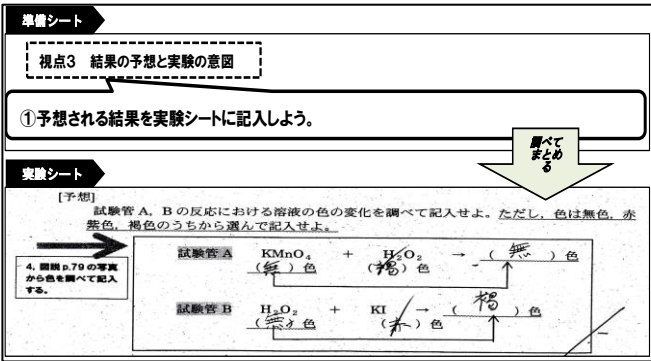 準備シート
視点3 結果の予想と実験の意図
①予想される結果を実験シートに記入しよう。
調べて
まとめ
る
実験シート
[予想]
試験管 A, B の反応における溶液の色の変化を調べて記入せよ。ただし, 色は無色, 赤
紫色, 褐色のうちから選んで記入せよ。
4, 図説 p.79 の写真
から色を調べて記入
する。
試験管 A KMnO₄ + H₂O₂ → ( 無 ) 色
(無) 色 (褐) 色
試験管 B H₂O₂ + KI → ( 褐 ) 色
(無) 色 (赤) 色